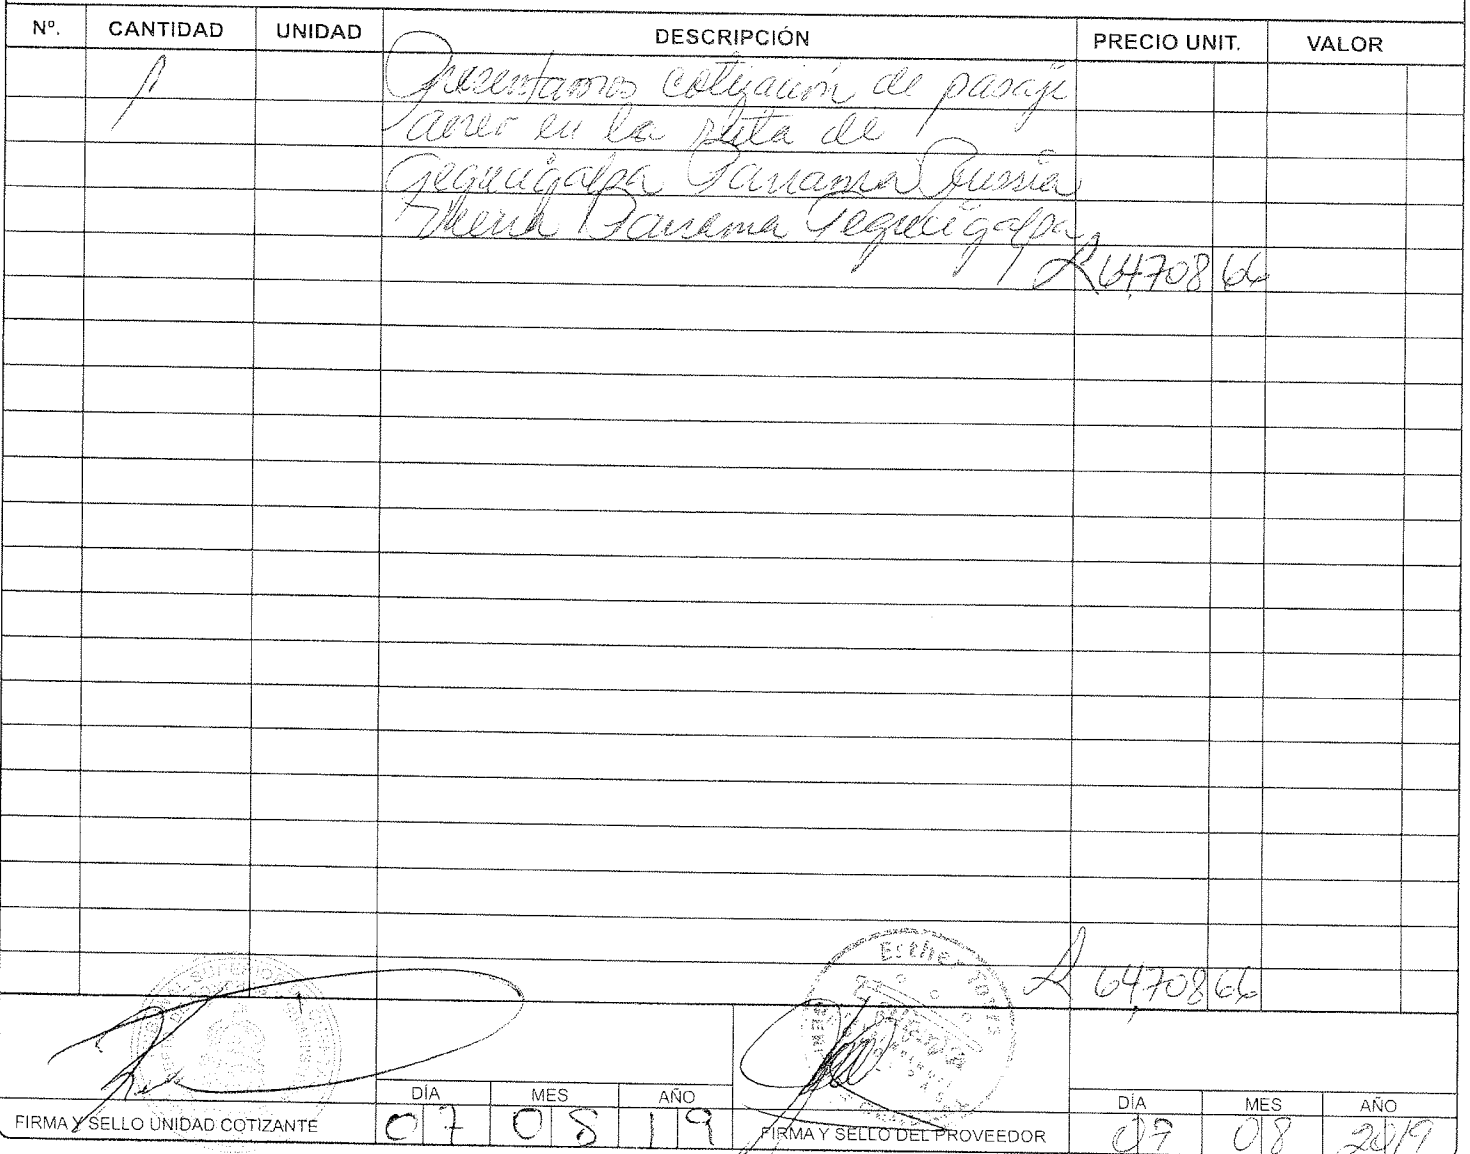 Nº. CANTIDAD UNIDAD DESCRIPCIÓN PRECIO UNIT. VALOR
1 Presentamos cotización de pasaje
aereo en la ruta de
Tegucigalpa Panama Russia
Panama Tegucigalpa
L 64,708 66
L 64,708 66
Esther Torres
DÍA MES AÑO
07 08 19
FIRMA Y SELLO UNIDAD COTIZANTE
DÍA MES AÑO
07 08 2019
FIRMA Y SELLO DEL PROVEEDOR